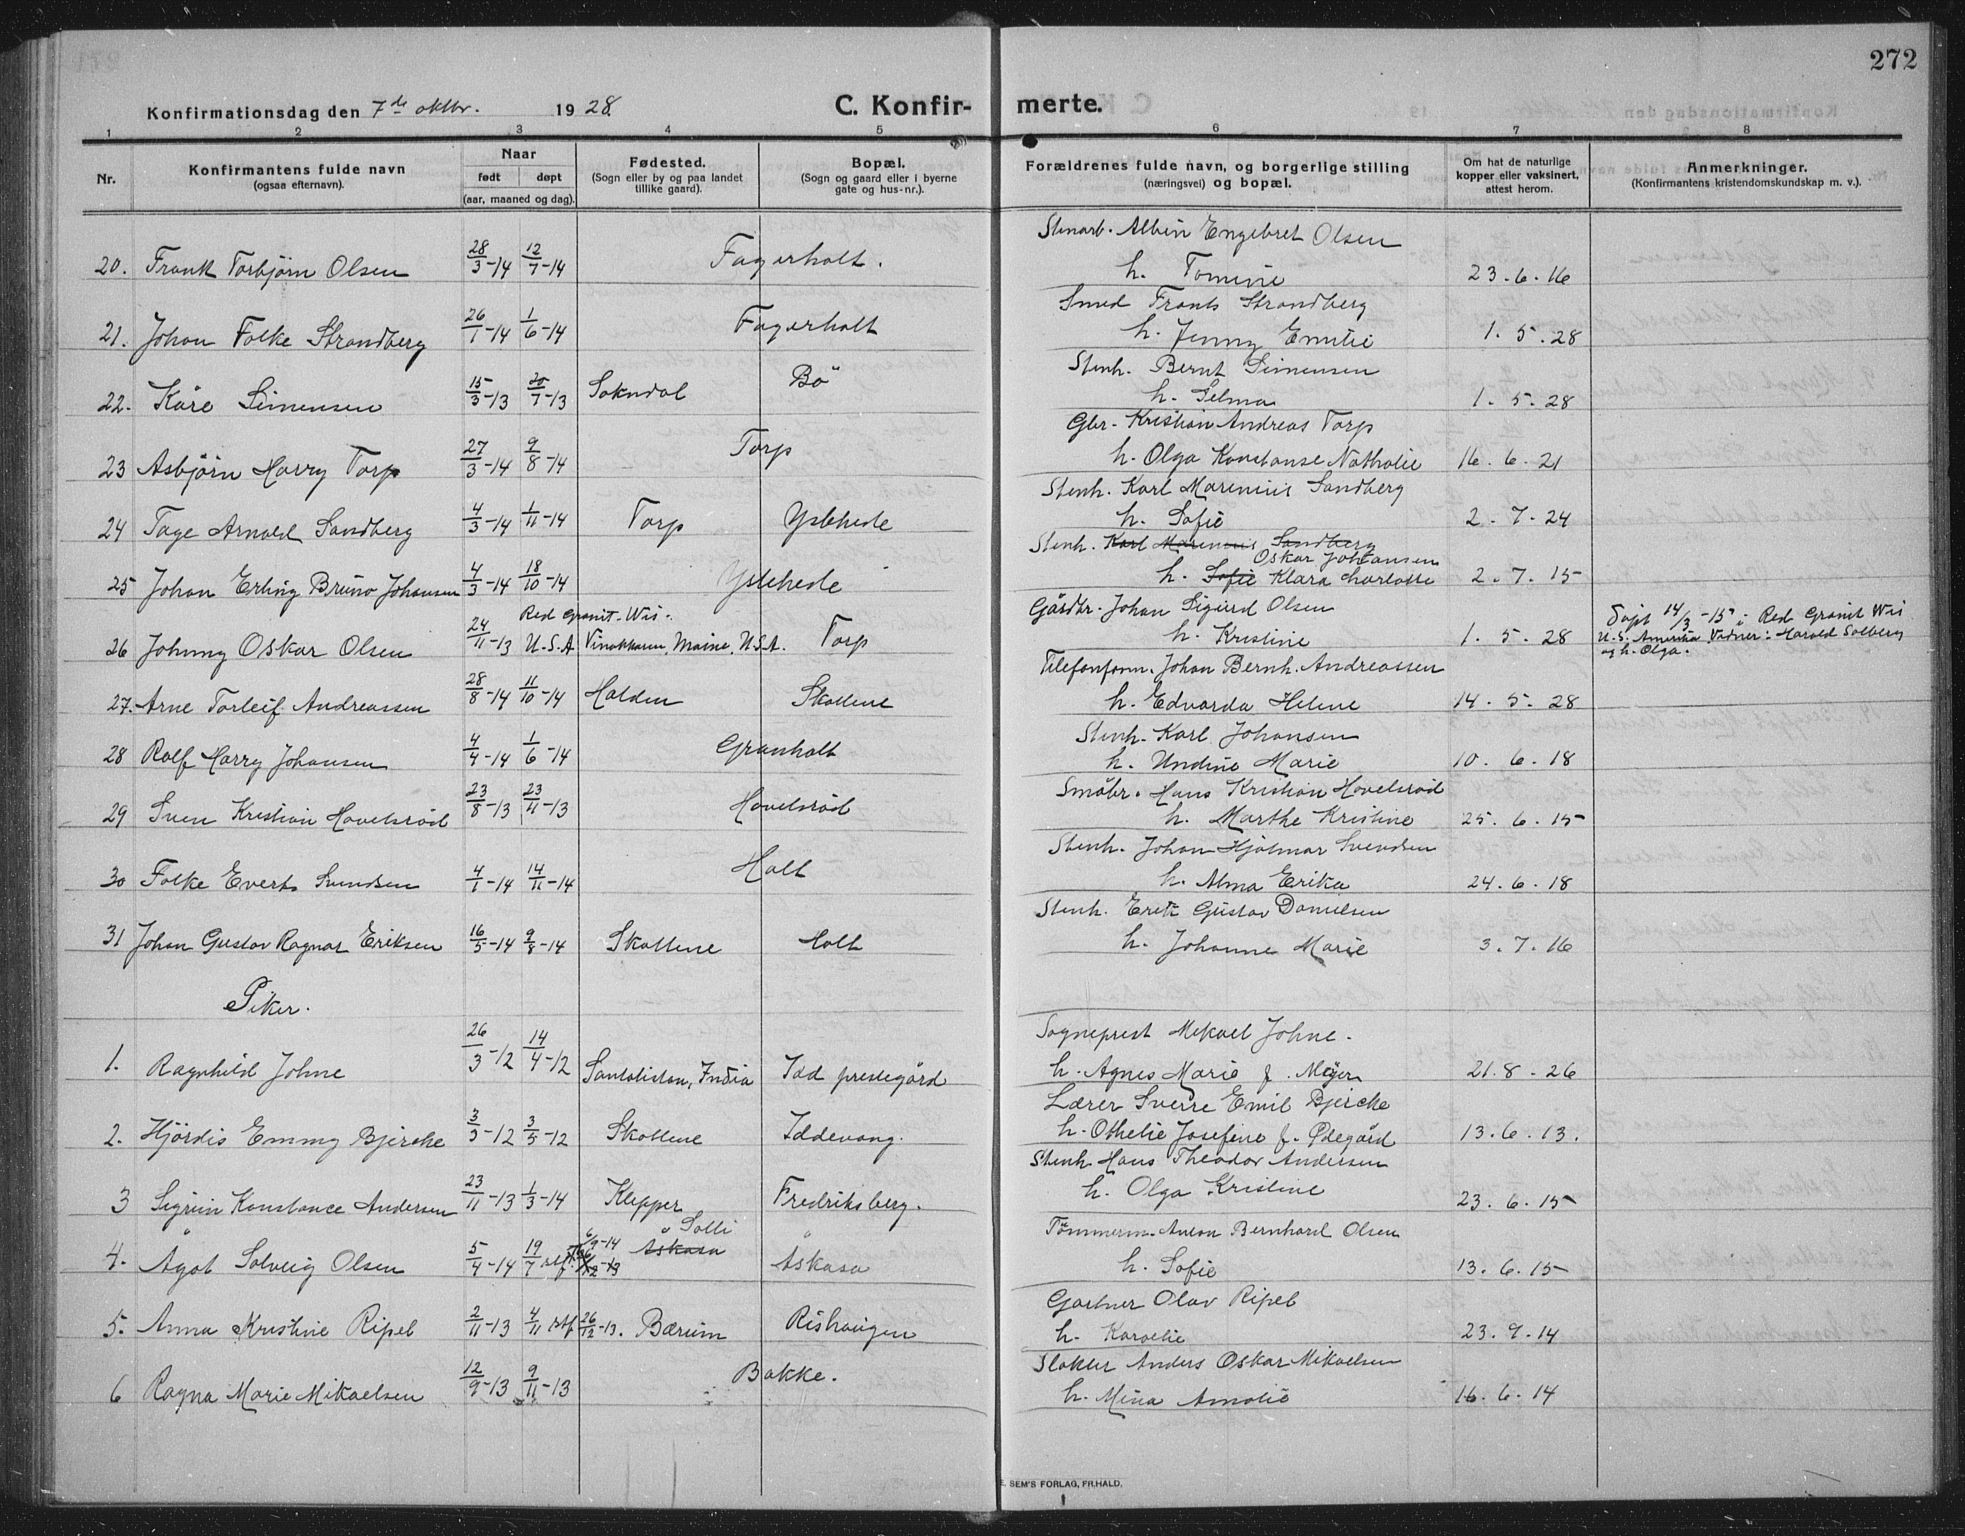 272
Konfirmationsdag den 7de oktbr. 1928. C. Konfir- merte.
1 2 3 4 5 6 7 8
Nr. Konfirmantens fulde navn (ogsaa efternavn). Naar født døpt (aar, maaned og dag). Fødested. (Sogn eller by og paa landet tillike gaard). Bopæl. (Sogn og gaard eller i byerne gate og hus-nr.). Forældrenes fulde navn, og borgerlige stilling (næringsvei) og bopæl. Om hat de naturlige kopper eller vaksinert, attest herom. Anmerkninger. (Konfirmantens kristendomskundskap m. v.).
Stenarb. Albin Engebret Olsen
20. Frank Torbjörn Olsen 28/3-14 12/7-14 Fagerholt. h. Tomine 23.6.16
Smed Frants Strandberg
21. Johan Folke Strandberg 26/1-14 1/6-14 Fagerholt h. Jenny Emilie 1.5.28
Stenh. Bernt Simensen
22. Kåre Simensen 15/3-13 20/7-13 Sokndal Bö h. Selma 1.5.28
Gbr. Kristian Andreas Torp
23 Asbjörn Harry Torp 27/3-14 9/8-14 Torp h. Olga Konstanse Nathalie 16.6.21
Stenh. Karl Marenius Sandberg
24 Tage Arnold Sandberg 4/3-14 1/11-14 Torp Ystehede h. Sofie 2.7.24
Stenh. Karl Marenius Sandberg Oskar Johansen
25 Johan Erling Bruno Johansen 4/3-14 18/10-14 Ystehede h. Sofie Klara Charlotte 2.7.15
Gårdbr. Johan Sigurd Olsen
26 Johnny Oskar Olsen 24/11-13 Red Granit-Wis. U.S.A Vinalhaven, Maine, U.S.A. Torp h. Kristine 1.5.28 Døpt 14/3-15 i Red Granit Wis U.S. Amerika Vidner: Harald Solberg og h. Olga.
Telefonform. Johan Bernh. Andreassen
27. Arne Torleif Andreassen 28/8-14 11/10-14 Halden Skottene h. Edvarda Helene 14.5.28
Stenh. Karl Johansen
28 Rolf Harry Johansen 4/4-14 1/6-14 Granholt h. Undine Marie 10.6.18
Småbr. Hans Kristian Hovelsröd
29 Sven Kristian Hovelsröd 23/8-13 23/11-13 Hovelsröd h. Marthe Kristine 25.6.15
Stenh. Johan Hjalmar Svendsen
30 Folke Everts Svendsen 4/1-14 14/11-14 Holt h. Alma Erika 24.6.18
Stenh. Erik Gustav Danielsen
31 Johan Gustav Ragnar Eriksen 16/5-14 9/8-14 Skottene Holt h. Johanne Marie 3.7.16
Piker.
Sogneprest Mikael Johne.
1. Ragnhild Johne 26/3-12 14/4-12 Santalistan, India Idd prestegård h. Agnes Marie f. Meyer 21.8-26
Lærer Sverre Emil Bjercke
2. Hjördis Emmy Bjercke 3/3-12 3/5-12 Skottene Iddevang. h. Othelie Josefine f. Ödegård 13.6.13.
Stenh. Hans Theodor Andersen
3 Sigrun Konstance Andersen 23/11-13 1/3-14 Klepper Fredriksberg. h. Olga Kristine 23.6.15
Tömmerm. Anton Bernhard Olsen
4. Ågot Solveig Olsen 5/4-14 19/7 6/9-14 Åskasa Solli Åskasa h. Sofie 13.6.15
Gartner Olav Ripel
5. Anna Kristine Ripel 2/11-13 4/11 stf 26/12-13. Bærum Rishaugen h. Karoelie 23.9.14
Slakter Anders Oskar Mikaelsen
6 Ragna Marie Mikaelsen 12/9-13 9/11-13 Bakke. h. Mina Amalie 16.6.14
E. SEM'S FORLAG, FR.HALD.